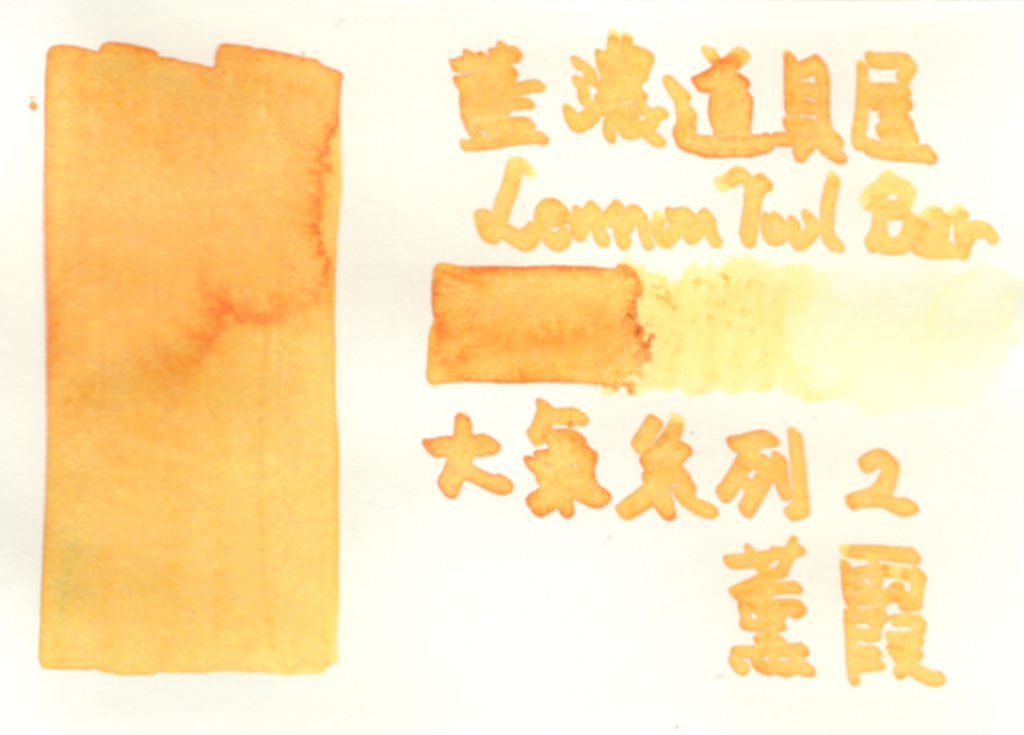 藍濃道具屋
Lennon Tool Bar
大氣系列 2
薰霞